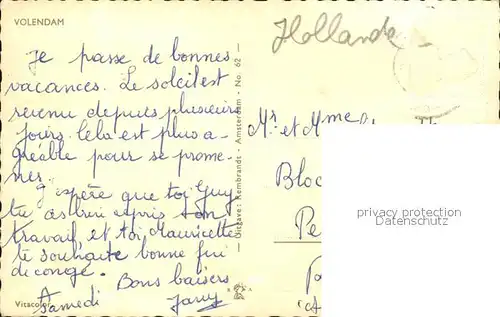 VOLENDAM
Hollande
Je passe de bonnes
vacances. Le soleil est
revenu depuis plusieurs
jours. Cela est plus a-
gréable pour se prome-
ner.
J'espère que toi Guy
tu as bien repris ton
travail, et toi Mauricette
te souhaite bonne fin
de congé.
Bons baisers
A Samedi
Jany
Uitgave: Rembrandt - Amsterdam - No. 62
Mr et Mme
Bloc
Pe
privacy protection
Datenschutz
Vitacolor